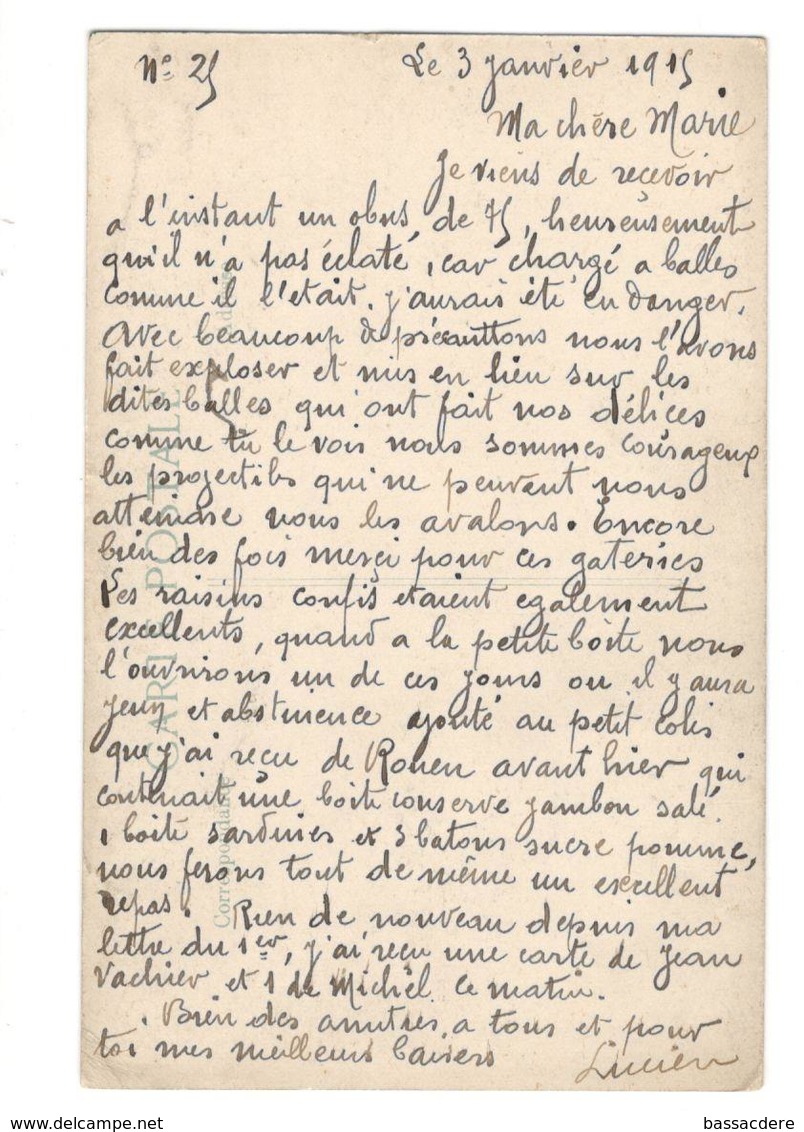 N° 25 Le 3 janvier 1915
Ma chère Marie
Je viens de reçevoir
a l'instant un obus de 75, heureusement
qu'il n'a pas éclaté, car chargé a balles
comme il l'etait. j'aurais été en danger.
Avec beaucoup de précauttons nous l'avons
fait exploser et mis en lieu sur les
dites balles qui ont fait nos délices
comme tu le vois nous sommes courageux
les projectiles qui ne peuvent nous
atteindre nous les avalons. Encore
bien des fois merçi pour ces gateries
Les raisins confis etaient egalement
excellents, quand a la petite boite nous
l'ouvrirons un de ces jours ou il y aura
jeun et abstinence ajouté au petit colis
que j'ai reçu de Rouen avant hier qui
contenait une boite conserve jambon salé.
1 boite sardines et 3 batons sucre pomme,
nous ferons tout de même un excellent
repas. Rien de nouveau depuis ma
lettre du 1er, j'ai reçu une carte de Jean
Vachier et 1 de Michel ce matin.
Bien des amities a tous et pour
toi mes meilleurs baisers Lucien
CARTE POSTALE
Correspondance
bassacdere